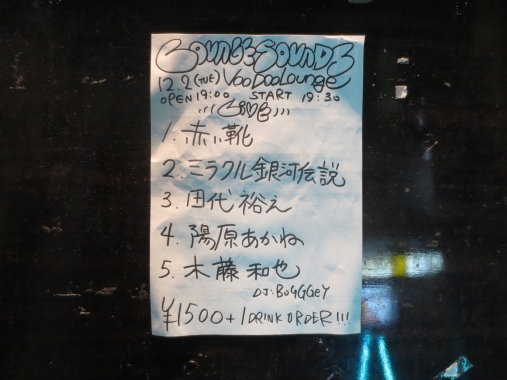 LOUNGE SOUNDZ
12.2(TUE) VooDooLounge
OPEN 19:00 START 19:30
LIVE
1. 赤い靴
2. ミラクル銀河伝説
3. 田代 裕え
4. 陽原あかね
5. 木藤 和也
DJ: BOGGGeY
¥1500+1DRINK ORDER!!!